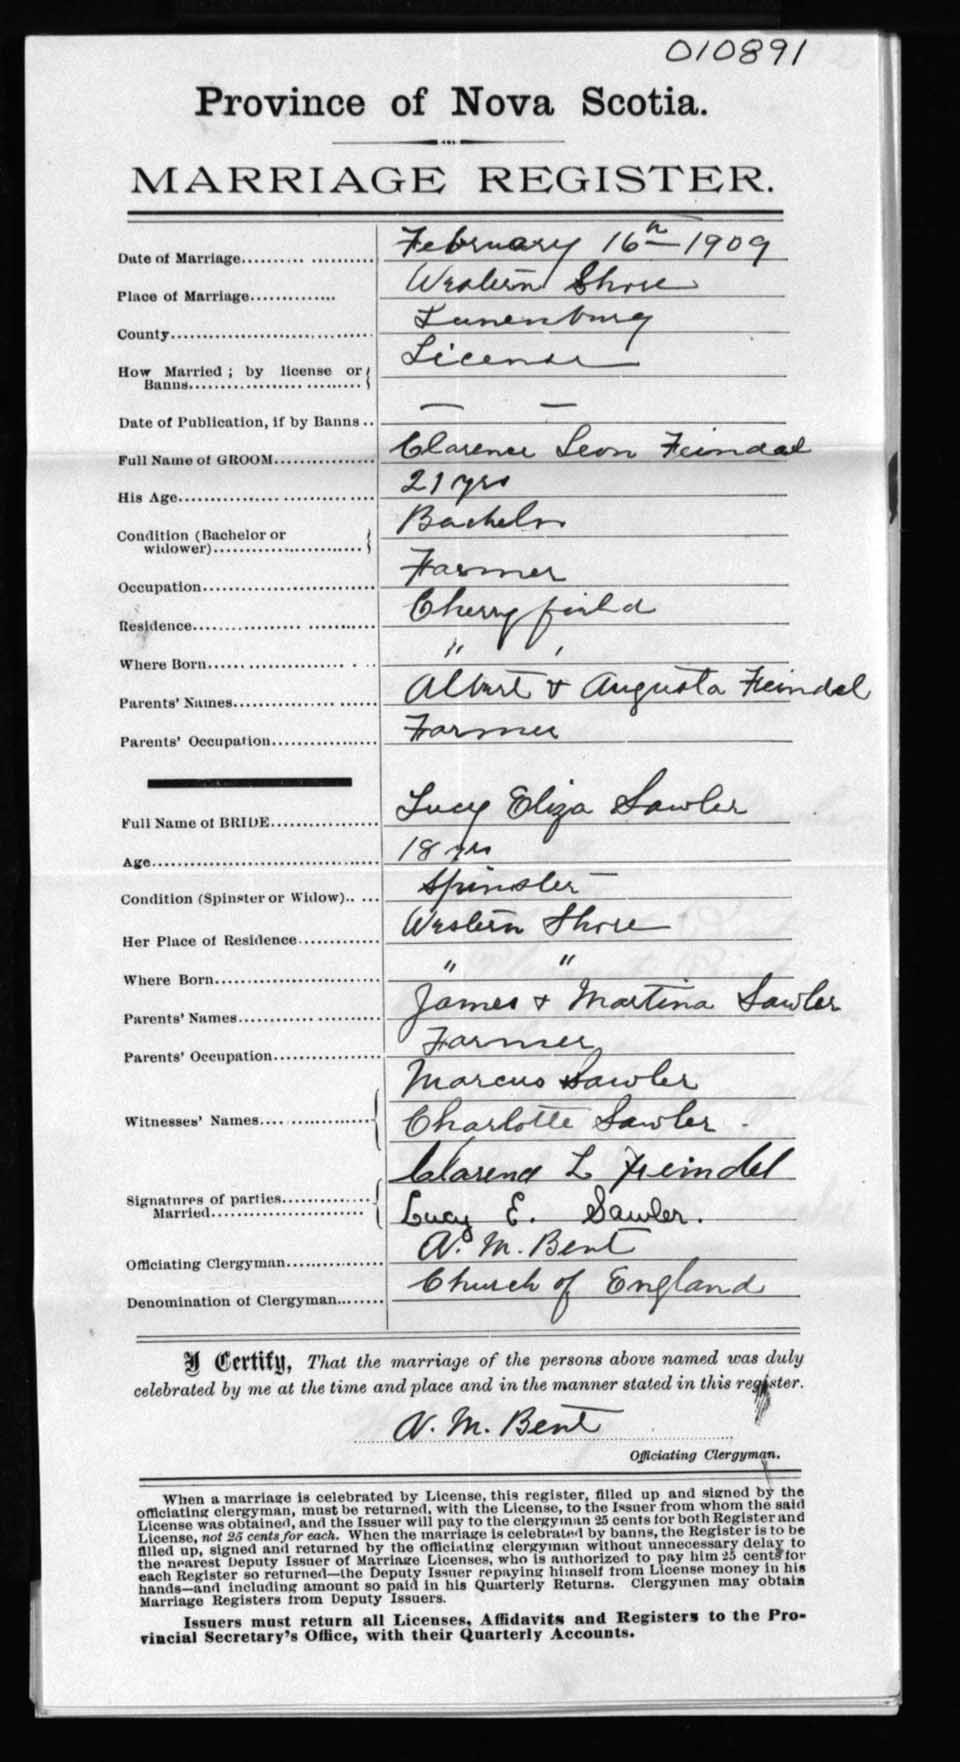 010891
Province of Nova Scotia.
MARRIAGE REGISTER.
Date of Marriage.......... February 16th 1909
Place of Marriage.......... Western Shore
County.......... Lunenburg
How Married; by license or Banns.......... License
Date of Publication, if by Banns.. — —
Full Name of GROOM.......... Clarence Leon Feindal
His Age.......... 21 yrs
Condition (Bachelor or widower).......... Bachelor
Occupation.......... Farmer
Residence.......... Cherryfield
Where Born.......... " "
Parents' Names.......... Albert & Augusta Feindel
Parents' Occupation.......... Farmer
Full Name of BRIDE.......... Lucy Eliza Sawler
Age.......... 18 yrs
Condition (Spinster or Widow)..... Spinster
Her Place of Residence.......... Western Shore
Where Born.......... " "
Parents' Names.......... James & Martina Sawler
Parents' Occupation.......... Farmer
Witnesses' Names.......... Marcus Sawler
Charlotte Sawler
Signatures of parties Married.......... Clarence L Feindel
Lucy E. Sawler.
Officiating Clergyman.......... N. M. Bent
Denomination of Clergyman....... Church of England
I Certify, That the marriage of the persons above named was duly
celebrated by me at the time and place and in the manner stated in this register.
N. M. Bent
Officiating Clergyman.
When a marriage is celebrated by License, this register, filled up and signed by the
officiating clergyman, must be returned, with the License, to the Issuer from whom the said
License was obtained, and the Issuer will pay to the clergyman 25 cents for both Register and
License, not 25 cents for each. When the marriage is celebrated by banns, the Register is to be
filled up, signed and returned by the officiating clergyman without unnecessary delay to
the nearest Deputy Issuer of Marriage Licenses, who is authorized to pay him 25 cents for
each Register so returned—the Deputy Issuer repaying himself from License money in his
hands—and including amount so paid in his Quarterly Returns. Clergymen may obtain
Marriage Registers from Deputy Issuers.
Issuers must return all Licenses, Affidavits and Registers to the Pro-
vincial Secretary's Office, with their Quarterly Accounts.